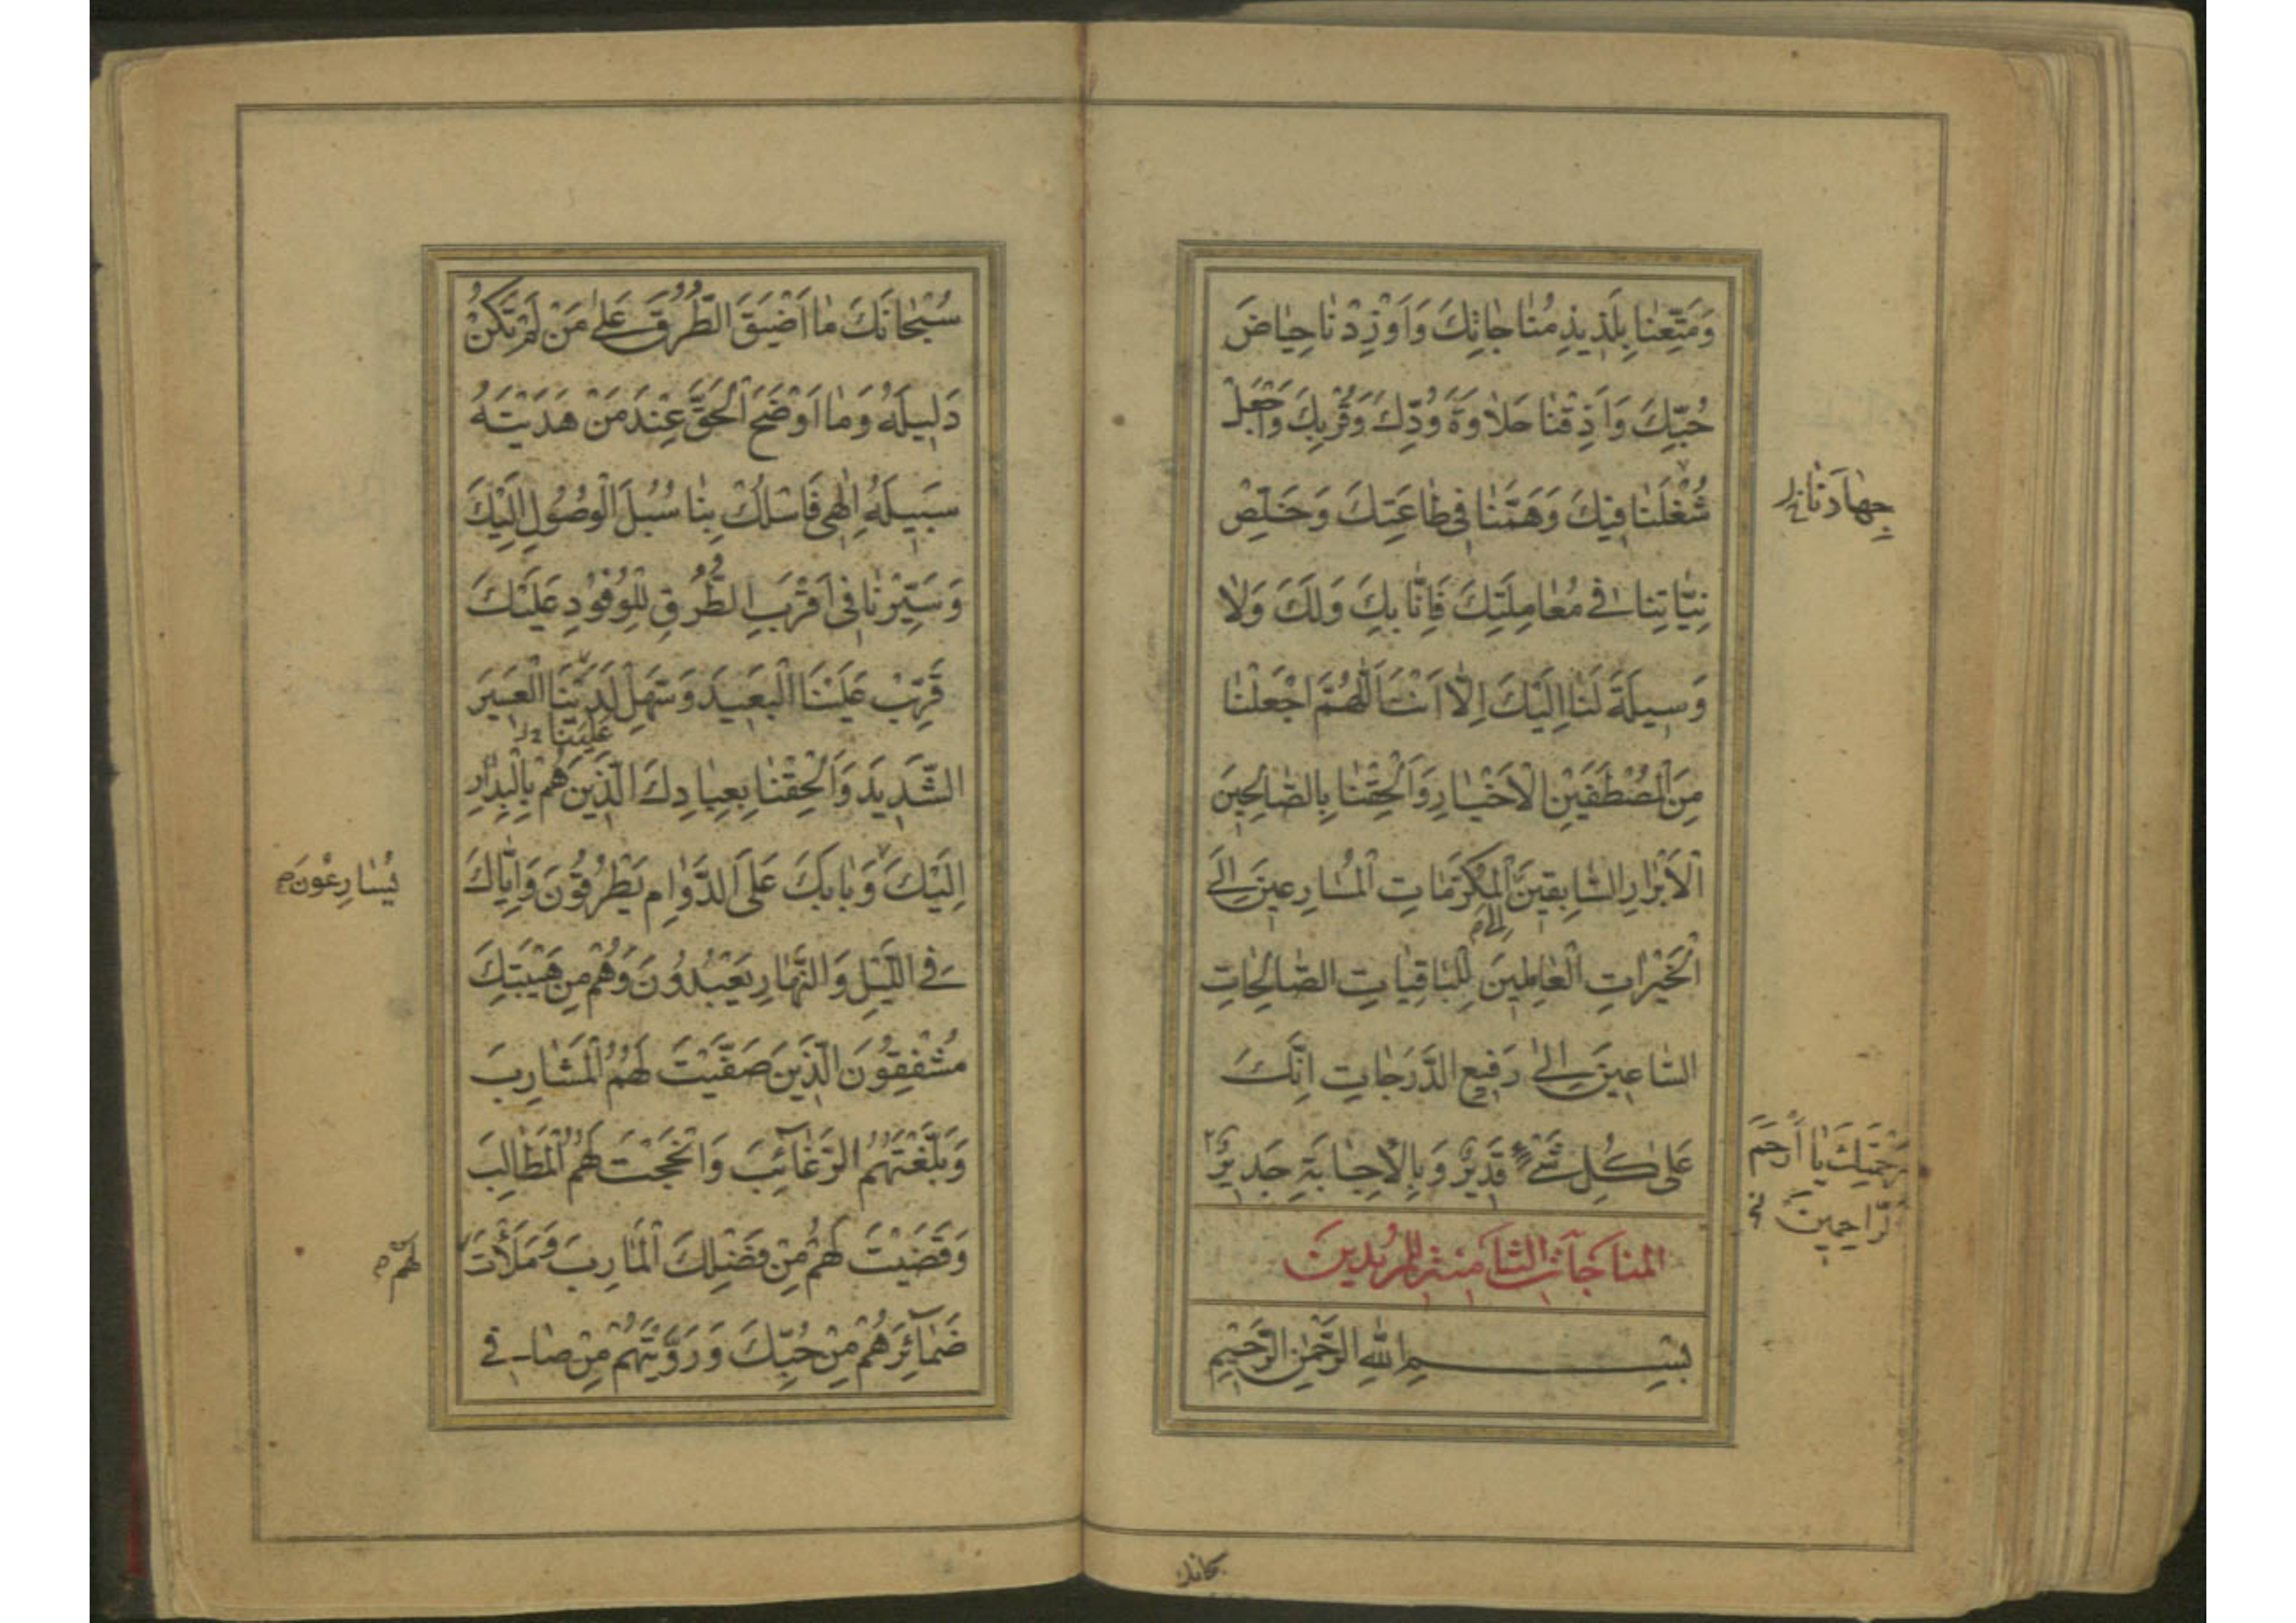 وَمَتِّعْنَا بِلَذِيذِ مُنَاجَاتِكَ وَأَوْرِدْنَا حِيَاضَ
حُبِّكَ وَأَذِقْنَا حَلَاوَةَ وُدِّكَ وَقُرْبِكَ وَاجْعَلْ
شُغْلَنَا فِيكَ وَهَمَّنَا فِي طَاعَتِكَ وَخَلِّصْ
جِهَادَنَا
نِيَّاتِنَا فِي مُعَامِلَتِكَ فَإِنَّا بِكَ وَلَكَ وَلَا
وَسِيلَةَ لَنَا إِلَيْكَ إِلَّا أَنْتَ اَللّٰهُمَّ اجْعَلْنَا
مِنَ الْمُصْطَفَيْنَ الْأَخْيَارِ وَأَلْحِقْنَا بِالصَّالِحِينَ
الْأَبْرَارِ السَّابِقِينَ الْمَكْرُمَاتِ الْمُسَارِعِينَ إِلَى
إِلَى
الْخَيْرَاتِ الْعَامِلِينَ لِلْبَاقِيَاتِ الصَّالِحَاتِ
السَّاعِينَ إِلَىٰ رَفِيعِ الدَّرَجَاتِ إِنَّكَ
عَلَىٰ كُلِّ شَيْءٍ قَدِيرٌ وَبِالْإِجَابَةِ جَدِيرٌ
بِرَحْمَتِكَ يَا أَرْحَمَ
الرَّاحِمِينَ
المناجات الثامنة للمريدين
بِسْمِ اللهِ الرَّحْمٰنِ الرَّحِيمِ
سُبْحَانَكَ مَا أَضْيَقَ الطُّرُقَ عَلَىٰ مَنْ لَمْ تَكُنْ
دَلِيلَهُ وَمَا أَوْضَحَ الْحَقَّ عِنْدَ مَنْ هَدَيْتَهُ
سَبِيلَهُ إِلٰهِي فَاسْلُكْ بِنَا سُبُلَ الْوُصُولِ إِلَيْكَ
وَسَيِّرْنَا فِي أَقْرَبِ الطُّرُقِ لِلْوُفُودِ عَلَيْكَ
قَرِّبْ عَلَيْنَا الْبَعِيدَ وَسَهِّلْ لَدَيْنَا الْعَسِيرَ
عَلَيْنَا
الشَّدِيدَ وَأَلْحِقْنَا بِعِبَادِكَ الَّذِينَ هُمْ بِالْبِدَارِ
إِلَيْكَ وَبَابَكَ عَلَى الدَّوَامِ يَطْرُقُونَ وَإِيَّاكَ
يُسَارِعُونَ
فِي اللَّيْلِ وَالنَّهَارِ يَعْبُدُونَ وَهُمْ مِنْ هَيْبَتِكَ
مُشْفِقُونَ الَّذِينَ صَفَّيْتَ لَهُمُ الْمَشَارِبَ
وَبَلَّغْتَهُمُ الرَّغَائِبَ وَأَنْجَحْتَ لَهُمُ الْمَطَالِبَ
وَقَضَيْتَ لَهُمْ مِنْ فَضْلِكَ الْمَآرِبَ وَمَلَأْتَ
لَهُمْ
ضَمَائِرَهُمْ مِنْ حُبِّكَ وَرَوَّيْتَهُمْ مِنْ صَافِي